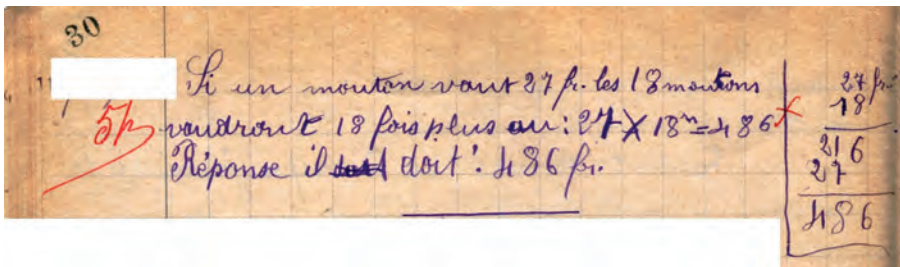 30
Si un mouton vaut 27 fr. les 18 moutons
5h vaudront 18 fois plus ou : 27 X 18 = 486
Réponse il doit : 486 fr.
27 fr.
18
216
27
486